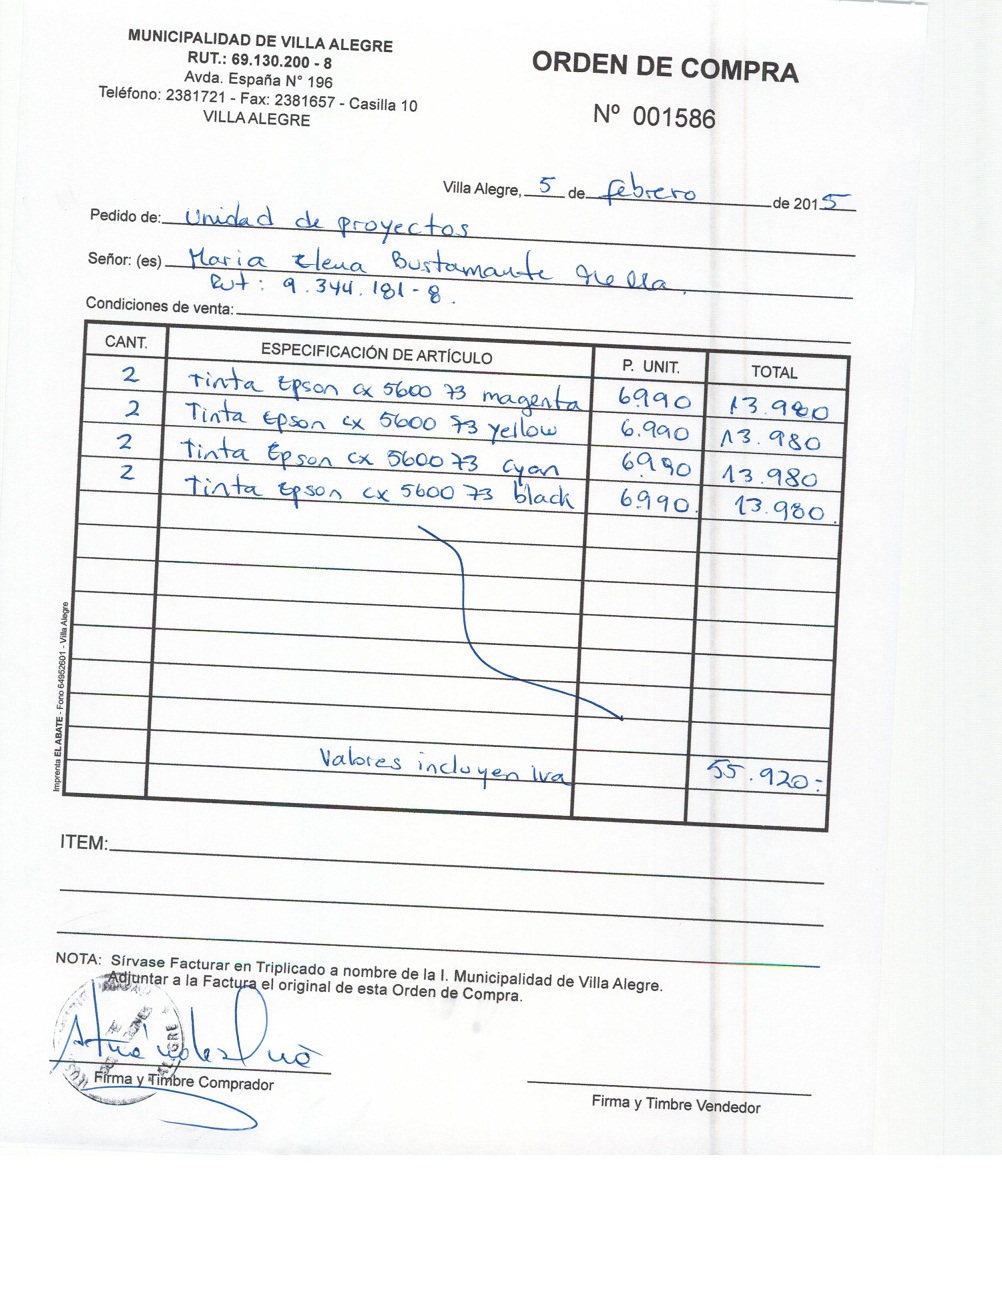 MUNICIPALIDAD DE VILLA ALEGRE
RUT.: 69.130.200 - 8
Avda. España N° 196
Teléfono: 2381721 - Fax: 2381657 - Casilla 10
VILLA ALEGRE
ORDEN DE COMPRA
Nº 001586
Villa Alegre, 5 de febrero de 2015
Pedido de: Unidad de proyectos
Señor: (es) Maria Elena Bustamante
Rut : 9.344.181-8.
Condiciones de venta:
CANT. ESPECIFICACIÓN DE ARTÍCULO P. UNIT. TOTAL
2 Tinta Epson cx 5600 73 magenta 6990 13.980
2 Tinta Epson cx 5600 73 yellow 6.990 13.980
2 Tinta Epson cx 5600 73 cyan 6990 13.980
2 Tinta Epson cx 5600 73 black 6990. 13.980.
Valores incluyen iva 55.920:
Imprenta EL ABATE - Fono 64952601 - Villa Alegre
ITEM:
NOTA: Sírvase Facturar en Triplicado a nombre de la I. Municipalidad de Villa Alegre.
Adjuntar a la Factura el original de esta Orden de Compra.
Firma y Timbre Comprador
Firma y Timbre Vendedor